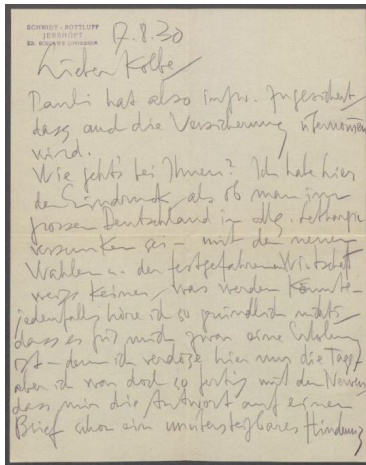 SCHMIDT-ROTTLUFF
JERSHÖFT
17.8.30
Lieber Kolbe/
Pauli hat also zugesichert/
dass auch die Versicherung übernommen
wird.
Wie geht's bei Ihnen? Ich habe hier
den Eindruck, als ob man im
grossen Deutschland in allg. Lethargie
versunken sei – mit den neuen
Wahlen u. der festgefahrenen Wirtschaft
weiss keiner/ was werden könnte –
jedenfalls höre ich so gründlich nichts/
dass es für mich zwar eine Erholung
ist – denn ich verdöse hier nur die Tage/
aber ich war doch so fertig mit den Nerven/
dass mir die Antwort auf einen
Brief schon ein unübersteigbares Hindernis